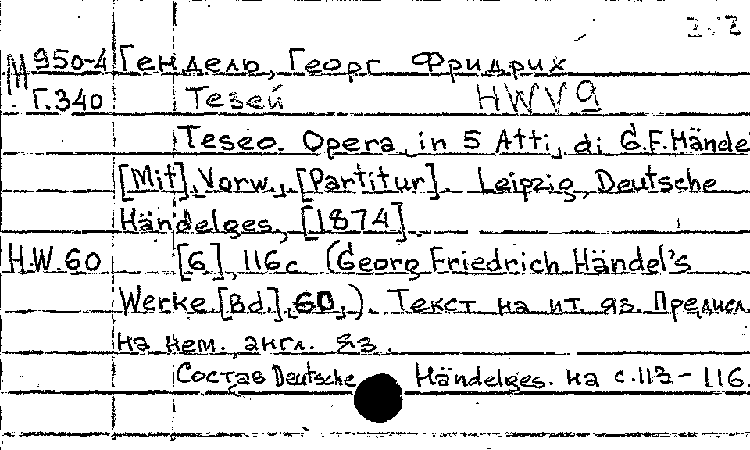 М 950-4 Гендель, Георг Фридрих
Г.340 Тезей HWV 9
Teseo. Opera in 5 Atti, di G.F. Hände
[Mit] Vorw., [Partitur]. Leipzig, Deutsche
Händelges, [1874].
H.W. 60 [6], 116 с (Georg Friedrich Händel's
Werke. [Bd.], 60,). Текст на ит. яз. Предисл.
на нем. англ. яз.
Состав Deutsche Händelges. на с. 113-116.